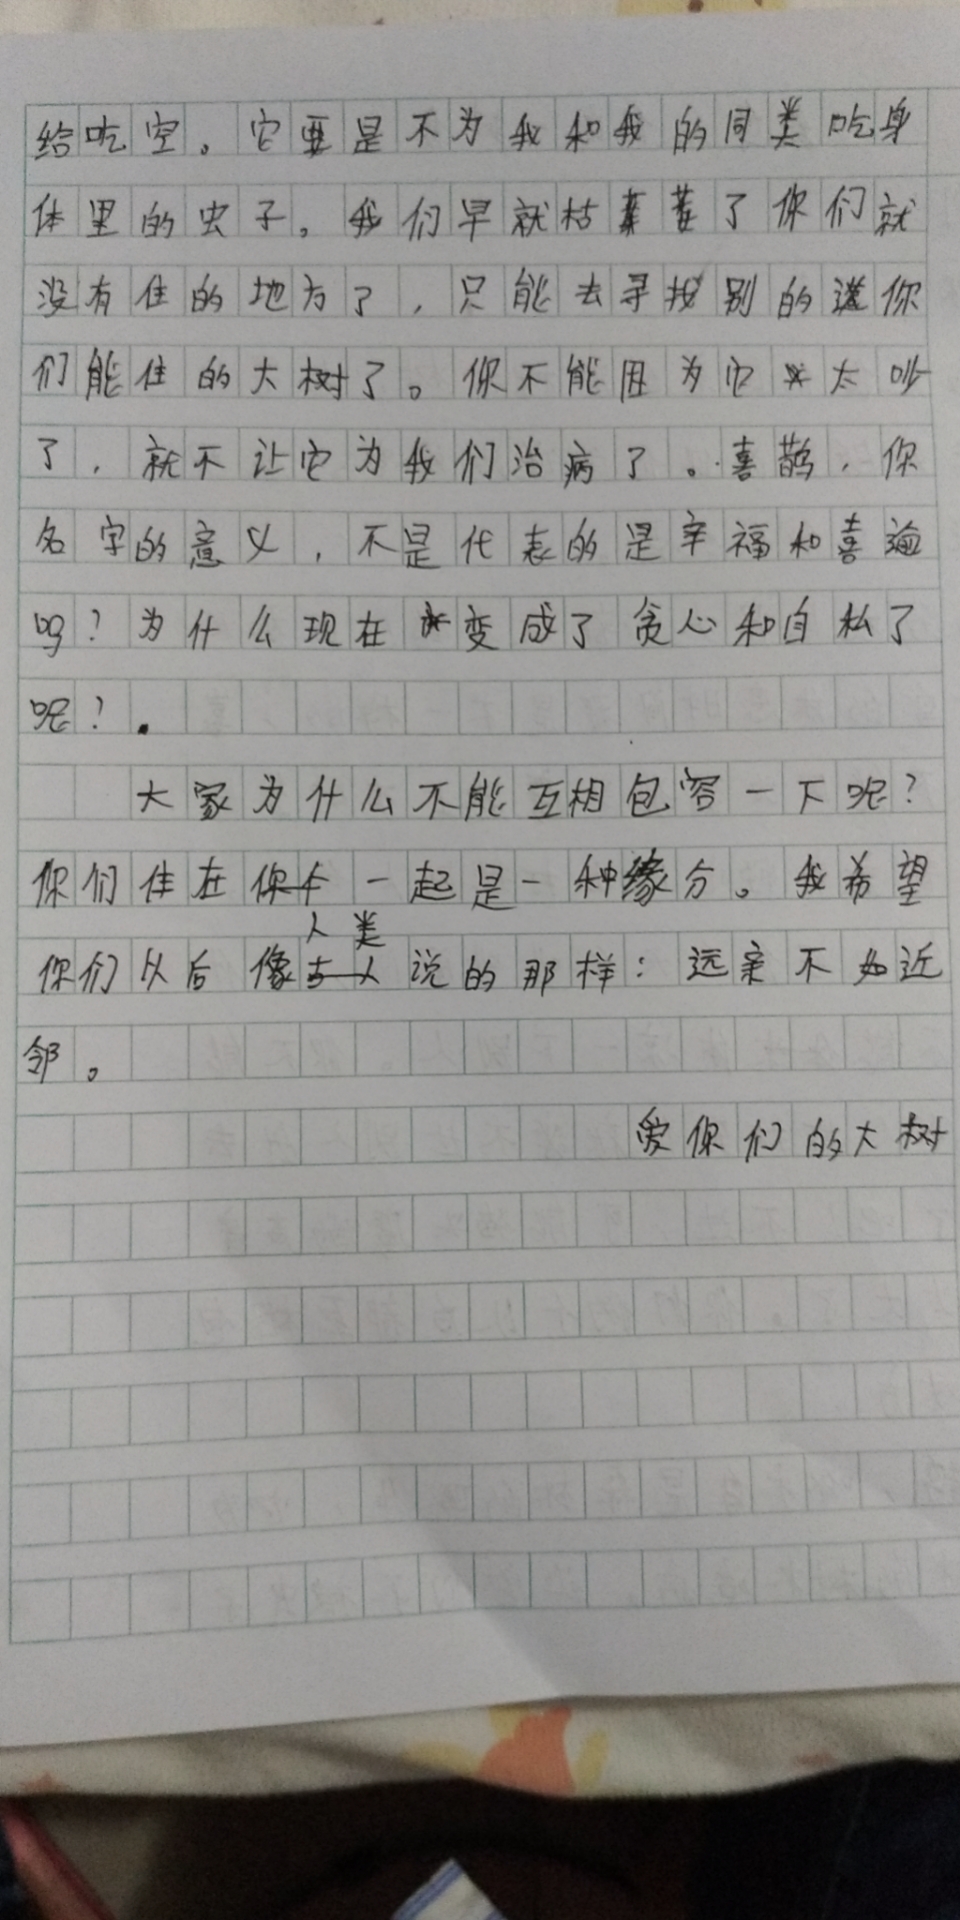 给吃空。它要是不为我和我的同类吃身
体里的虫子。我们早就枯萎了你们就
没有住的地方了，只能去寻找别的送你
们能住的大树了。你不能因为它太吵
了，就不让它为我们治病了。喜鹊，你
名字的意义，不是代表的是辛福和喜逾
吗？为什么现在变成了贪心和自私了
呢？.
大家为什么不能互相包容一下呢？
你们住在一起是一种缘分。我希望
人类
你们以后像说的那样：远亲不如近
邻。
爱你们的大树